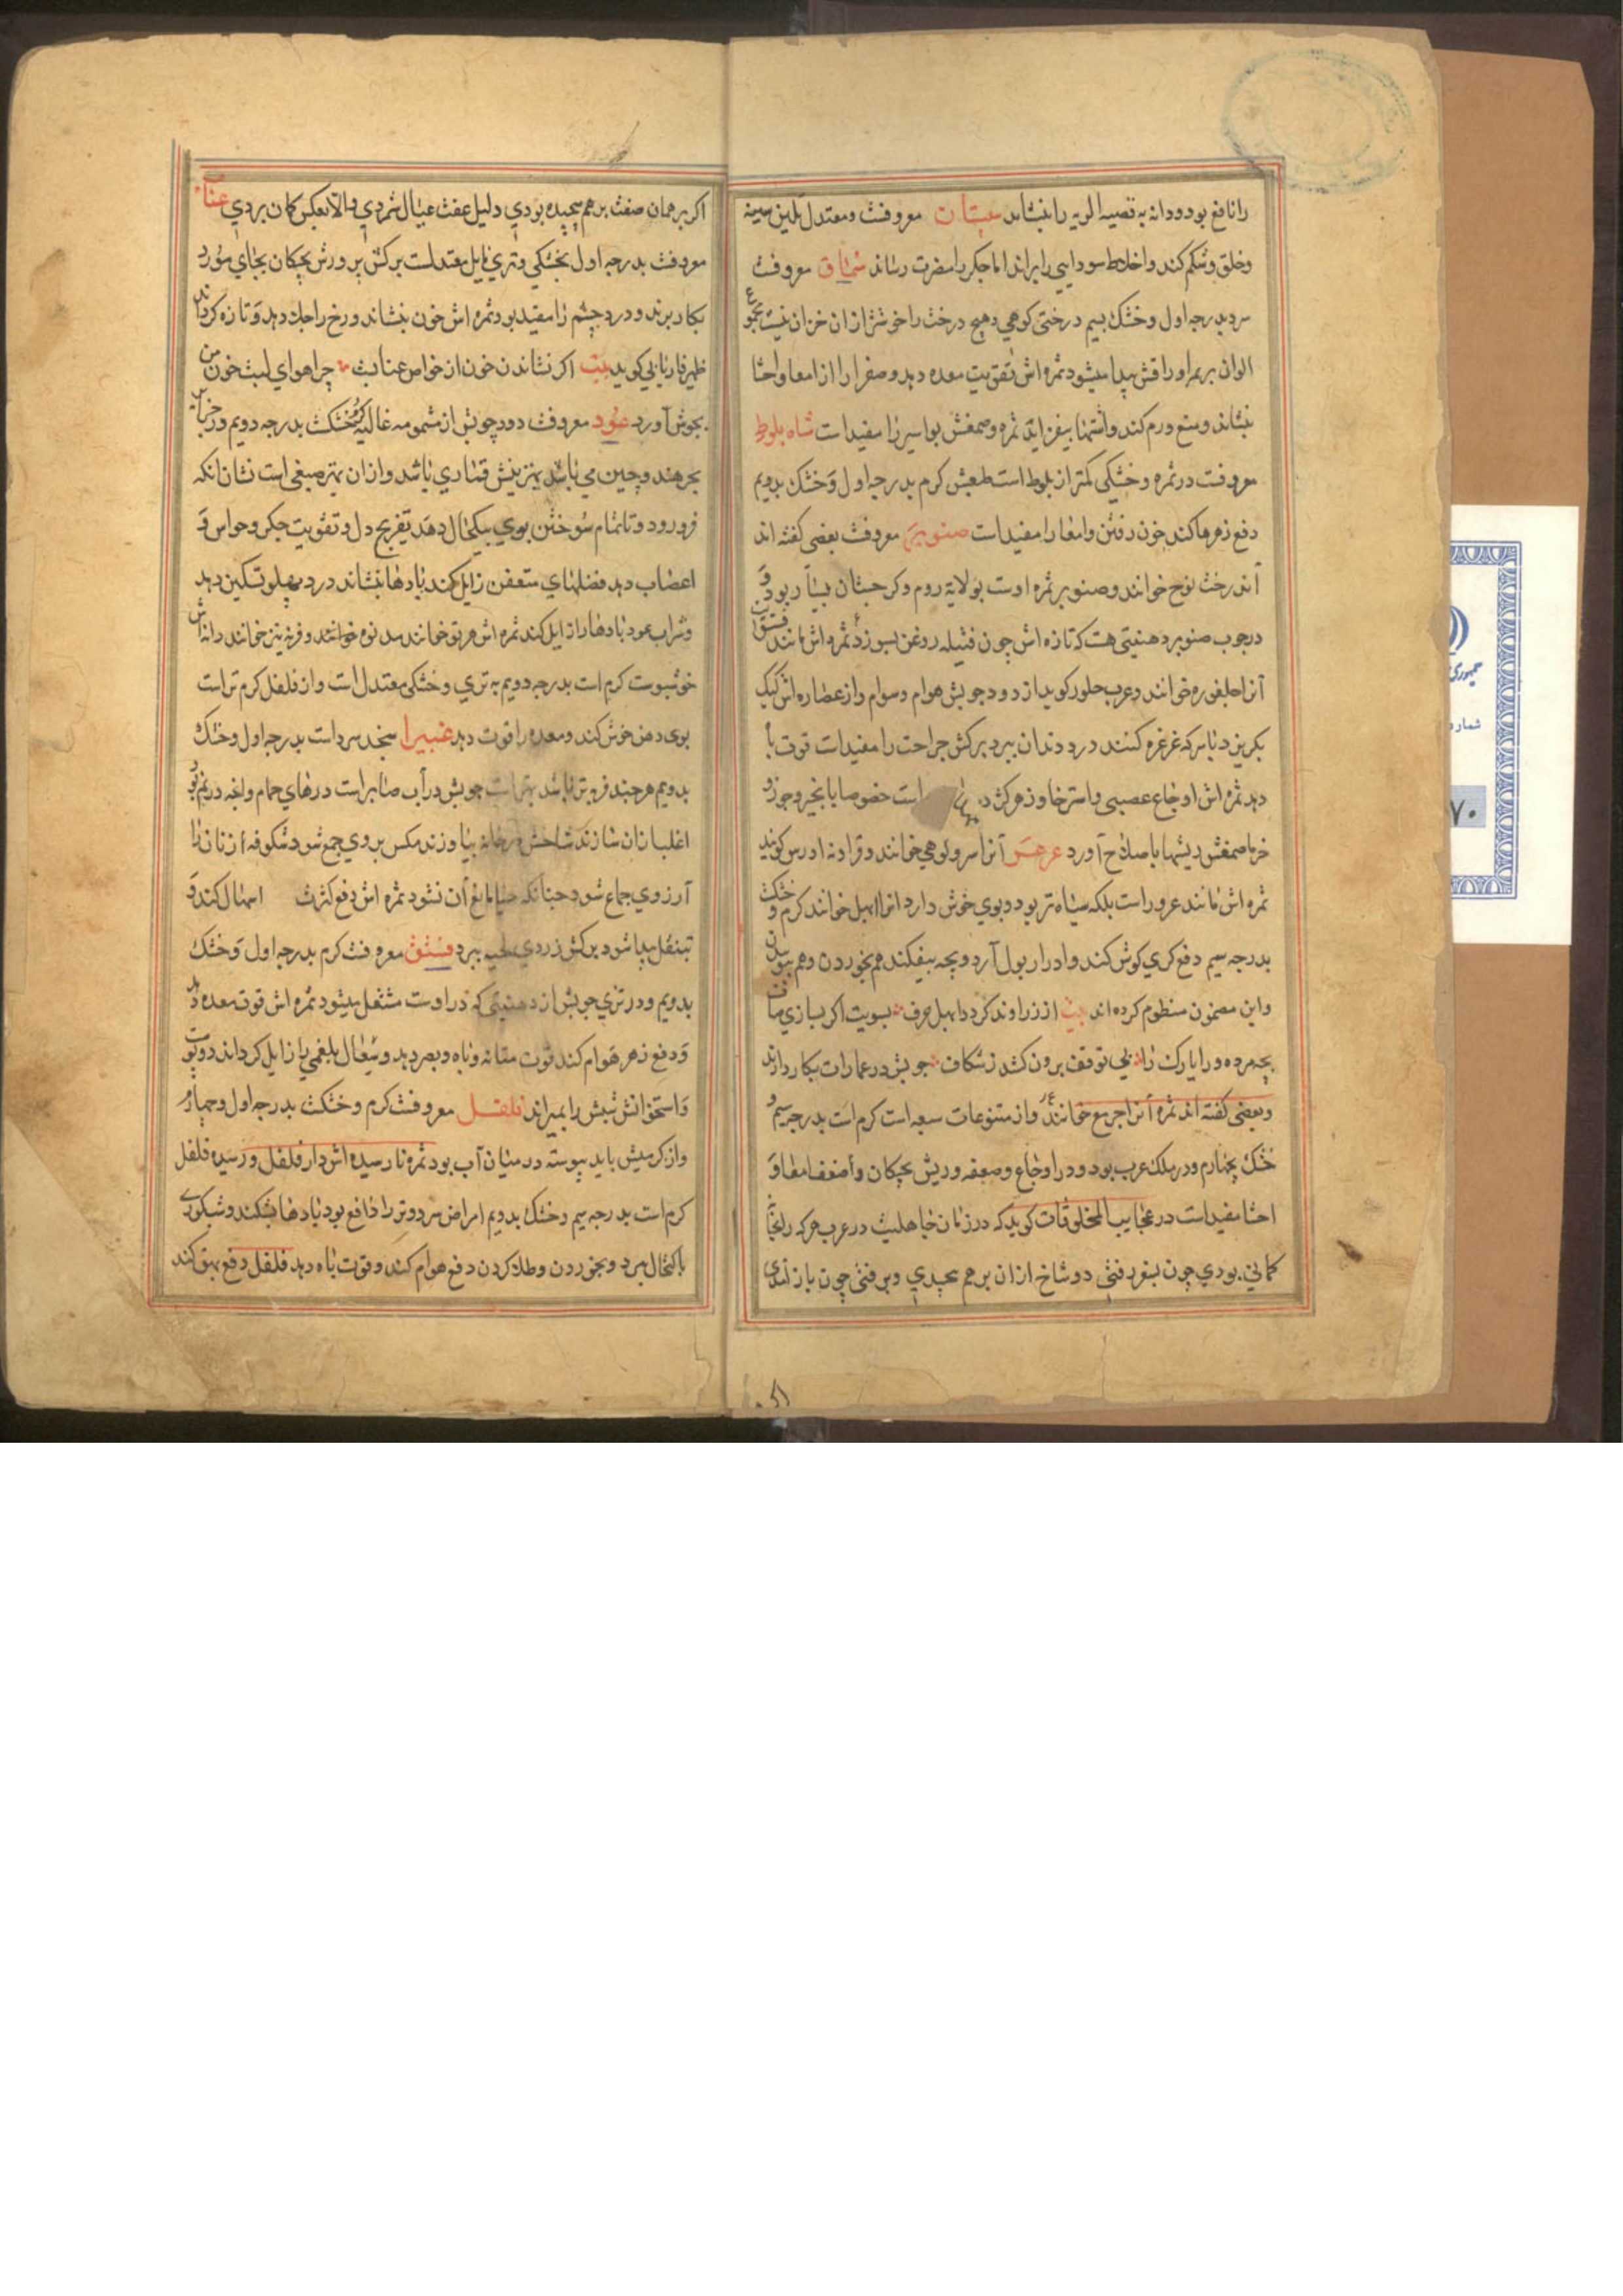 را نافع بود و دانه به قصبه الریه را بنشاند سپستان معروفست و معتدل تلین سینه
و حلق و شکم کند و اخلاط سودایی را براند اما جکر را مضرت رساند سماق معروفست
سرد بدرجه اول و خشک بسیم درختی کوهی و هیچ درخت را خوشتر از ان خزان نیست مجموع
الوان بر اوراقش پیدا میشود ثمره اش تقویت معده دهد و صفرا را از امعا و احشا
بنشاند و منع ورم کند و اشتها بیفزاید ثمره و صمغش بواسیر را مفید است شاه بلوط
معروفست در ثمره و خشکی کمتر از بلوط است طبعش کرم بدرجه اول و خشک بدویم
دفع زهرها کند خون رفتن و امعا را مفید است صنوبر معروفست بعضی کفته اند
آن درخت نوح خوانند و صنوبر ثمره اوست بولایة روم و کرجستان بسیار بود و
در چوب صنوبر دهنیتی هست که تازه اش چون فتیله روغن بسوزد ثمره اش مانند فستق است
آنرا جلغوزه خوانند و عرب جلوز کوید از دود چوبش هوام و سوام و از عصاره اش کیک
بکریزد با سرکه غرغره کنند درد دندان ببرد برکش جراحت را مفید است قوت با
دهد ثمره اش اوجاع عصبی و استرخا و زهر کژدم است خصوصا با انجیر و جوز و
خرما صمغش ریشها با صلاح آورد عرعر آنرا سرو کوهی خوانند و قرادنه ادرس کویند
ثمره اش مانند عرور است بلکه سیاه تر بود و بوی خوش دارد انرا ابهل خوانند کرم و خشکست
بدرجه سیم دفع کری کوش کند و ادرار بول آرد و بچه بیفکند هم بخوردن و هم ببوییدن
و این مضمون منظوم کرده اند بیت از زراوند کرد و ابهل حرف بسویت اکر بسازی صاف
بچه مرده و را یارک را بی توقف برون کشد ز شکاف چوبش در عمارات بکار دارند
و بعضی کفته اند ثمره آنرا خوانند و از متنوعات سبعه است کرم است بدرجه سیم و
خشک بچهارم و در ملک عرب بود و در اوجاع و ضعف و ریش بچکان و اضعف امعا و
احشا مفید است در عجایب المخلوقات کوید که در زمان جاهلیت در عرب هرکه را بجا
کمانی بودی چون بسفر رفتی دو شاخ از ان بر هم پیچیدی و برفتی چون باز آمدی
اکر بر همان صفت بر هم پیچیده بودی دلیل عفت عیال شمردی و الا بعکس کمان بردی عناب
معروفست بدرجه اول بخشکی و تری مایل معتدلست برکش بر ورش بچکان بجای مورد
بکار برند و درد چشم را مفید بود ثمره اش خون بنشاند و رخ را جلا دهد و تازه کرداند
ظهیر فاریابی کوید بیت اکر نشاندن خون از خواص عنابست چرا هوای لبت خون من
بجوش آورد عود معروفست و دود چوبش از مشمومه غالیه کرم و خشکست بدرجه دویم و در جزایر
بحر هند و چین می باشد بهترینش قماری باشد و از ان بهتر صیغی است نشان انکه
فرو رود و تا تمام سوختن بوی بیکحال دهد تفریح دل و تقویت جکر و حواس و
اعضاب دهد فضلهای متعفن زایل کند بادها بنشاند درد پهلو تسکین دهد
و شراب عود بادها را زایل کند ثمره اش هر بق خوانند
خوشبوست کرم است بدرجه دویم به تری و خشکی معتدل است و از فلفل کرم تر است
بوی دهن خوش کند و معده را قوت دهد غبیرا سنجد سرد است بدرجه اول و خشک
بدویم هرچند فربتر باشد بهتر است چوبش در آب صابر است درهای حمام و انچه در نم بود
اغلب از ان سازند شاخش در خانه بیاوزند مکس بر وی جمع شود شکوفه از زنان را
آرزوی جماع شود چنانکه حیا مانع آن نشود ثمره اش دفع کثرت اسهال کند و
تنقل پیدا شود برکش زردی ببرد فستق معروفست کرم بدرجه اول و خشک
بدویم و در تری چوبش از دهنیتی که در اوست مشتعل میشود ثمره اش قوت معده دهد
و دفع زهر هوام کند قوت مثانه و باه و بصر دهد و سعال بلغمی را زایل کرداند
و استخوانش شپش را بمیراند فلفل معروفست کرم و خشکست بدرجه اول و چهارم
و از کرمیش باید پیوسته در میان آب بود ثمره نا رسیده اش دار فلفل و رسیده فلفل
کرم است بدرجه سیم و خشک بدویم امراض سرد و تر را دافع بود بادها بشکند و شبکوری
باکتحال ببرد و بخوردن و طلا کردن دفع هوام کند و قوت باه دهد فلفل دفع بهق کند
جمهوری
شماره
۷۰